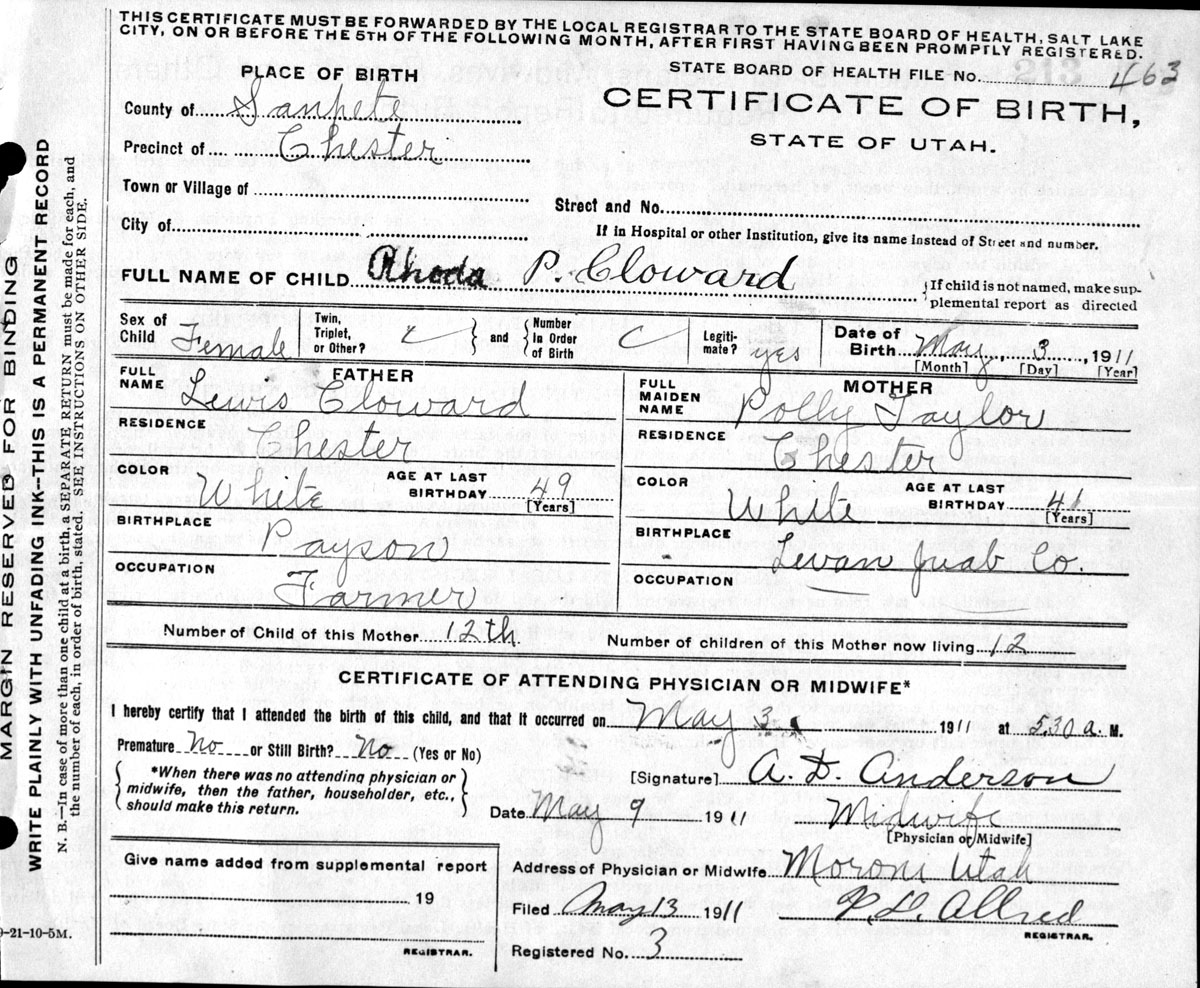 THIS CERTIFICATE MUST BE FORWARDED BY THE LOCAL REGISTRAR TO THE STATE BOARD OF HEALTH, SALT LAKE
CITY, ON OR BEFORE THE 5TH OF THE FOLLOWING MONTH, AFTER FIRST HAVING BEEN PROMPTLY REGISTERED.
STATE BOARD OF HEALTH FILE No. 463
PLACE OF BIRTH
CERTIFICATE OF BIRTH,
STATE OF UTAH.
County of Sanpete
Precinct of Chester
Town or Village of
Street and No.
City of
If in Hospital or other Institution, give its name instead of Street and number.
FULL NAME OF CHILD Rhoda P. Cloward
If child is not named, make sup-
plemental report as directed
Sex of Child Female
Twin, Triplet, or Other?
and
Number In Order of Birth
Legiti-mate? yes
Date of Birth May 3, 1911
[Month] [Day] [Year]
FATHER
FULL NAME Lewis Cloward
RESIDENCE Chester
COLOR White
AGE AT LAST BIRTHDAY 49
[Years]
BIRTHPLACE Payson
OCCUPATION Farmer
MOTHER
FULL MAIDEN NAME Polly Taylor
RESIDENCE Chester
COLOR White
AGE AT LAST BIRTHDAY 41
[Years]
BIRTHPLACE Levan Juab Co.
OCCUPATION
Number of Child of this Mother 12th
Number of children of this Mother now living 12
CERTIFICATE OF ATTENDING PHYSICIAN OR MIDWIFE*
I hereby certify that I attended the birth of this child, and that it occurred on May 3 1911 at 5:30 a. M.
Premature No or Still Birth? No (Yes or No)
*When there was no attending physician or
midwife, then the father, householder, etc.,
should make this return.
[Signature] A. D. Anderson
Date May 9 1911
Midwife
[Physician or Midwife]
Give name added from supplemental report
19
REGISTRAR.
Address of Physician or Midwife Moroni Utah
Filed May 13 1911
P. L. Allred
REGISTRAR.
Registered No. 3
MARGIN RESERVED FOR BINDING
WRITE PLAINLY WITH UNFADING INK—THIS IS A PERMANENT RECORD
N. B.—In case of more than one child at a birth, a SEPARATE RETURN must be made for each, and
the number of each, in order of birth, stated. SEE INSTRUCTIONS ON OTHER SIDE.
9-21-10-5M.